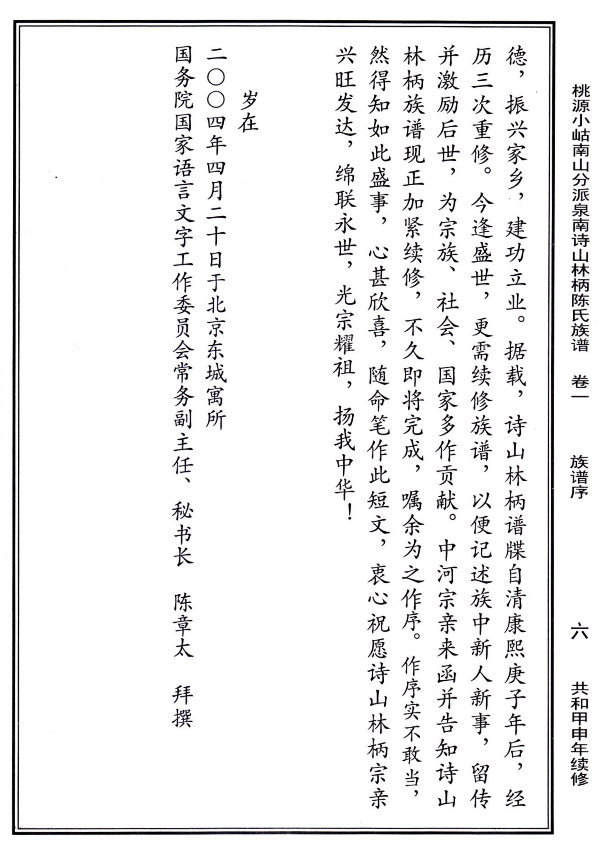 桃源小岵南山分派泉南诗山林柄陈氏族谱 卷一 族谱序 六 共和甲申年续修
德，振兴家乡，建功立业。据载，诗山林柄谱牒自清康熙庚子年后，经
历三次重修。今逢盛世，更需续修族谱，以便记述族中新人新事，留传
并激励后世，为宗族、社会、国家多作贡献。中河宗亲来函并告知诗山
林柄族谱现正加紧续修，不久即将完成，嘱余为之作序。作序实不敢当，
然得知如此盛事，心甚欣喜，随命笔作此短文，衷心祝愿诗山林柄宗亲
兴旺发达，绵联永世，光宗耀祖，扬我中华！
岁在
二〇〇四年四月二十日于北京东城寓所
国务院国家语言文字工作委员会常务副主任、秘书长 陈章太 拜撰